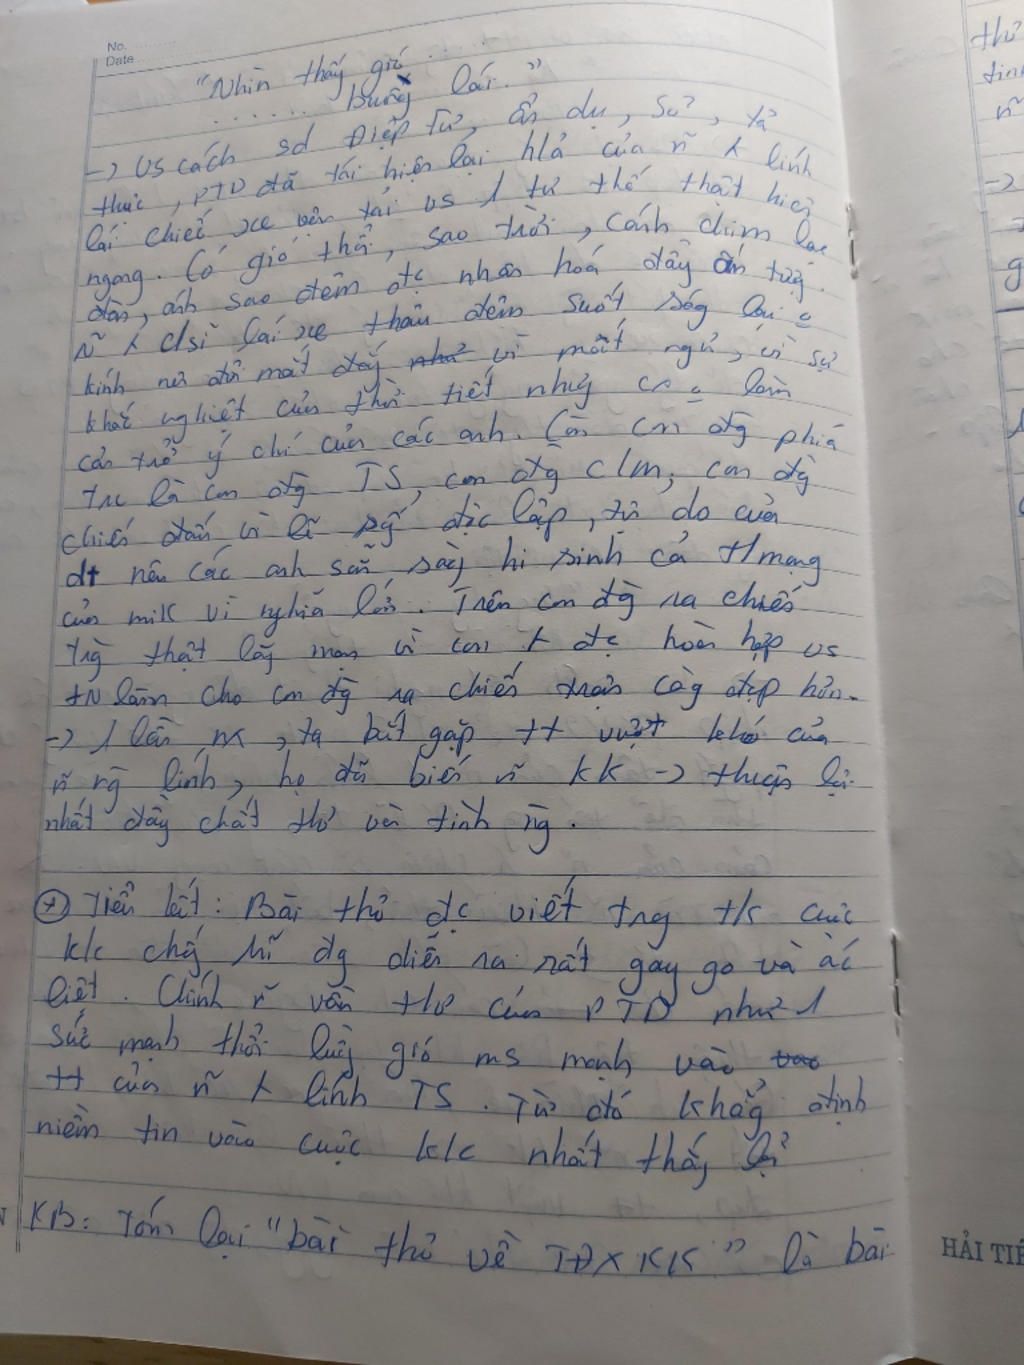 No.
Date
"Nhìn thấy gió .....
...... buồng lái."
-> vs cách sd Điệp từ, ẩn dụ, so², tả
thực, PTD đã tái hiện lại hả của ~ a lính
lái chiếc xe vận tải vs 1 tư thế thật hiên
ngang. Có gió thổi, sao trời, cánh chim lạc
đàn, ánh sao đêm đc nhân hoá đầy ấn tượg.
lái xe thâu đêm suốt ság
kính nên đôi mắt đắg vì mất ngủ, vì sự
khắc nghiệt của thời tiết nhưg làm
cản trở ý chí của các anh. Còn con đg phía
trc là con đg TS, con đg clm, con đg
chiến đấu vì lẽ độc lập, tự do của
dt nên các anh sẵn sàg hi sinh cả tmạng
của mik vì nghĩa lớn. Trên con đg ra chiến
trg thật lãg mạn vì con đc hoà hợp vs
tN làm cho con đg ra chiến trận càg đẹp hơn.
-> 1 lần nx, ta bắt gặp tt vượt khó của
~ ng lính, họ đã biến ~ kk -> thuận lợi
nhất đầy chất thơ và tình ng.
* Tiểu kết: Bài thơ đc viết trg tk cuộc
k/c chốg Mĩ đg diễn ra rất gay go và ác
liệt. Chính ~ vần thơ của PTD như 1
sức mạnh thổi luồg gió ms mạnh vào
tt của ~ a lính TS. Từ đó khẳg định
niềm tin vào cuộc k/c nhất thắg lợi
KB: Tóm lại "bài thơ về TĐXKK" là bài
thơ
tình
~
->
g
HẢI TIẾ